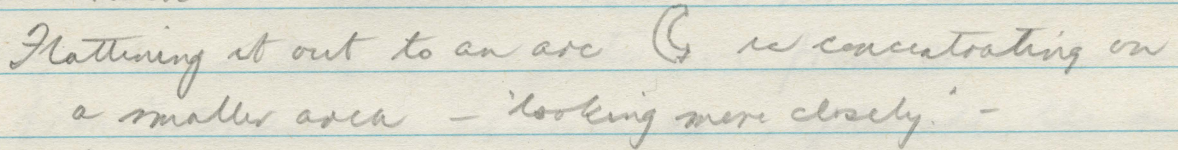 Flattining it out to an arc is concentrating on
a smaller area – 'looking more closely.' –